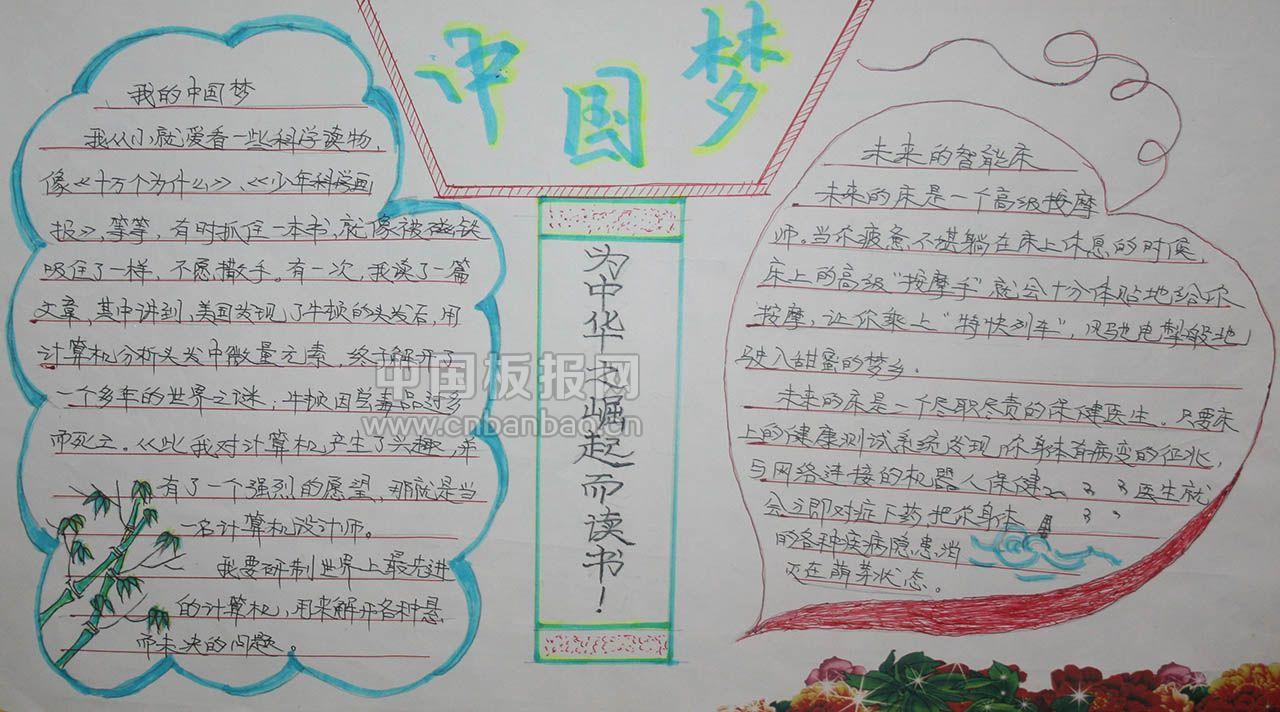 中国梦
我的中国梦
我从小就爱看一些科学读物,
像《十万个为什么》、《少年科学画
报》,等等,有时抓住一本书,就像被磁铁
吸住了一样,不愿撒手。有一次,我读了一篇
文章,其中讲到,美国发现了牛顿的头发后,用
计算机分析头发中微量元素,终于解开了
一个多年的世界之谜:牛顿因当毒品过多
而死亡。从此我对计算机产生了兴趣,并
有了一个强烈的愿望,那就是当
一名计算机设计师。
我要研制世界上最先进
的计算机,用来解开各种悬
而未决的问题。
为中华之崛起而读书!
未来的智能床
未来的床是一个高级按摩
师。当你疲惫不堪躺在床上休息的时候,
床上的高级“按摩手”就会十分体贴地给你
按摩,让你乘上“特快列车”,风驰电掣般地
驶入甜蜜的梦乡.
未来的床是一个尽职尽责的保健医生。只要床
上的健康测试系统发现,你身体有病变的征兆,
与网络连接的机器人保健医生就
会立即对症下药,把你身体
的各种疾病隐患,消
灭在萌芽状态。
中国板报网
www.cnbanbao.cn